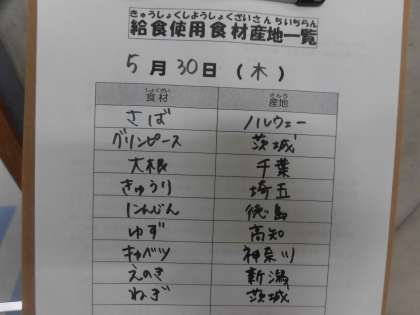 きゅうしょくしようしょくざいさんちいちらん
給食使用食材産地一覧
5月30日(木)
しょくざい さんち
食材 産地
さば ノルウェー
グリンピース 茨城
大根 千葉
きゅうり 埼玉
にんじん 徳島
ゆず 高知
キャベツ 神奈川
えのき 新潟
ねぎ 茨城